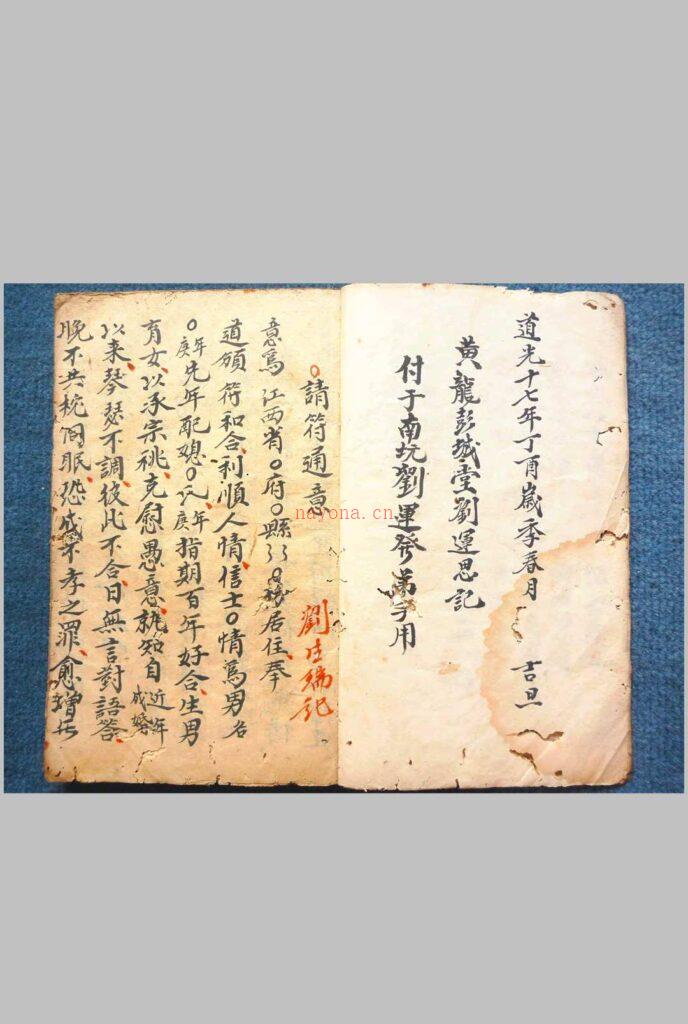 道光十七年丁酉歲季春月 吉旦
黃龍彭城堂劉運思記
付于南坑劉運發弟子用
○請符通意 劉 瑞記
意爲江西省○府○縣 居住奉
道頒符和合利順人情信士○情爲男名
○年庚先年配媳○氏年庚指期百年好合生男
育女以承宗祧克慰愚意孰知自近年成婚
以来琴瑟不調彼此不合日無言對語答
晚不共枕同眠恐成不孝之罪愈增
nayona.cn